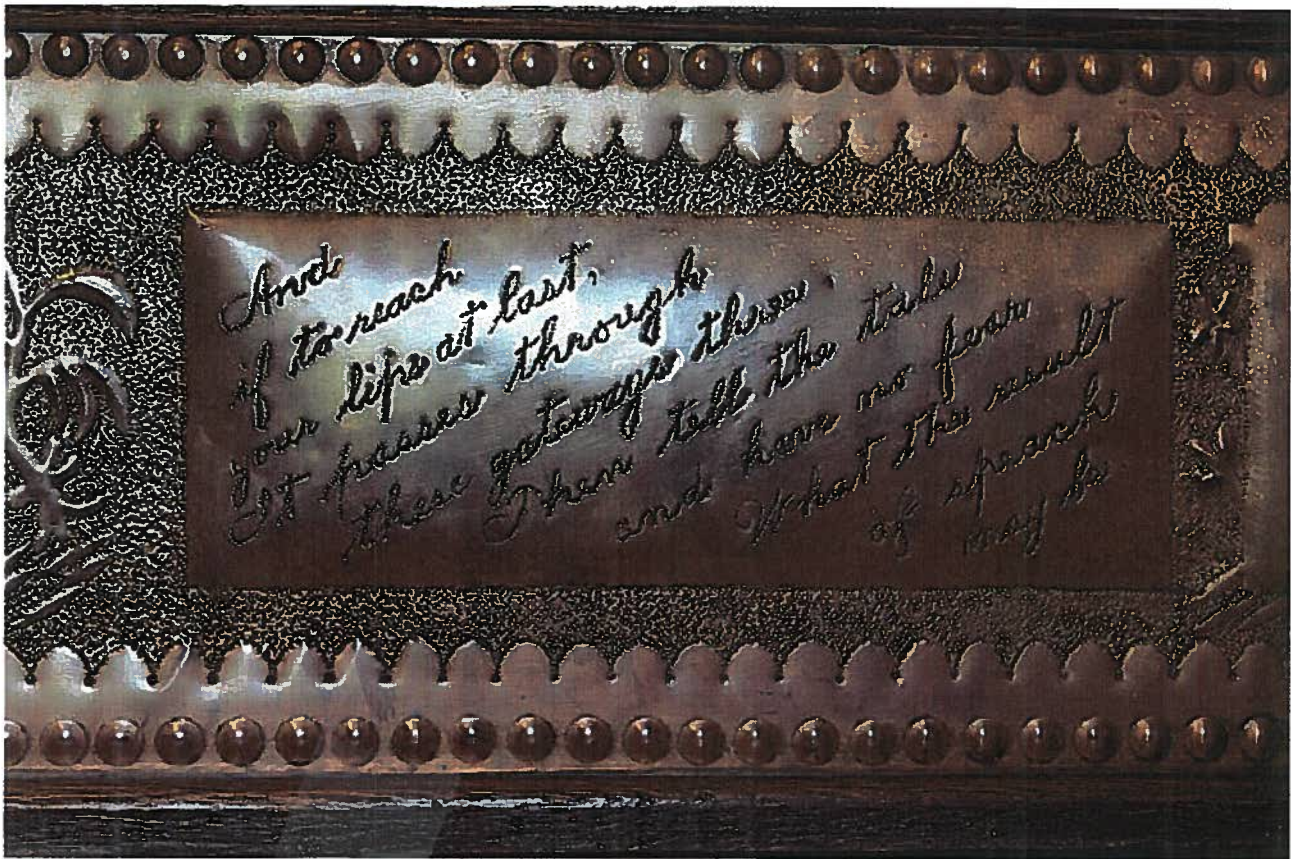 And
if to reach
your lips at last,
It passes through
these gateways three,
Then tell the tale
and have no fear
What the result
of speach
may be